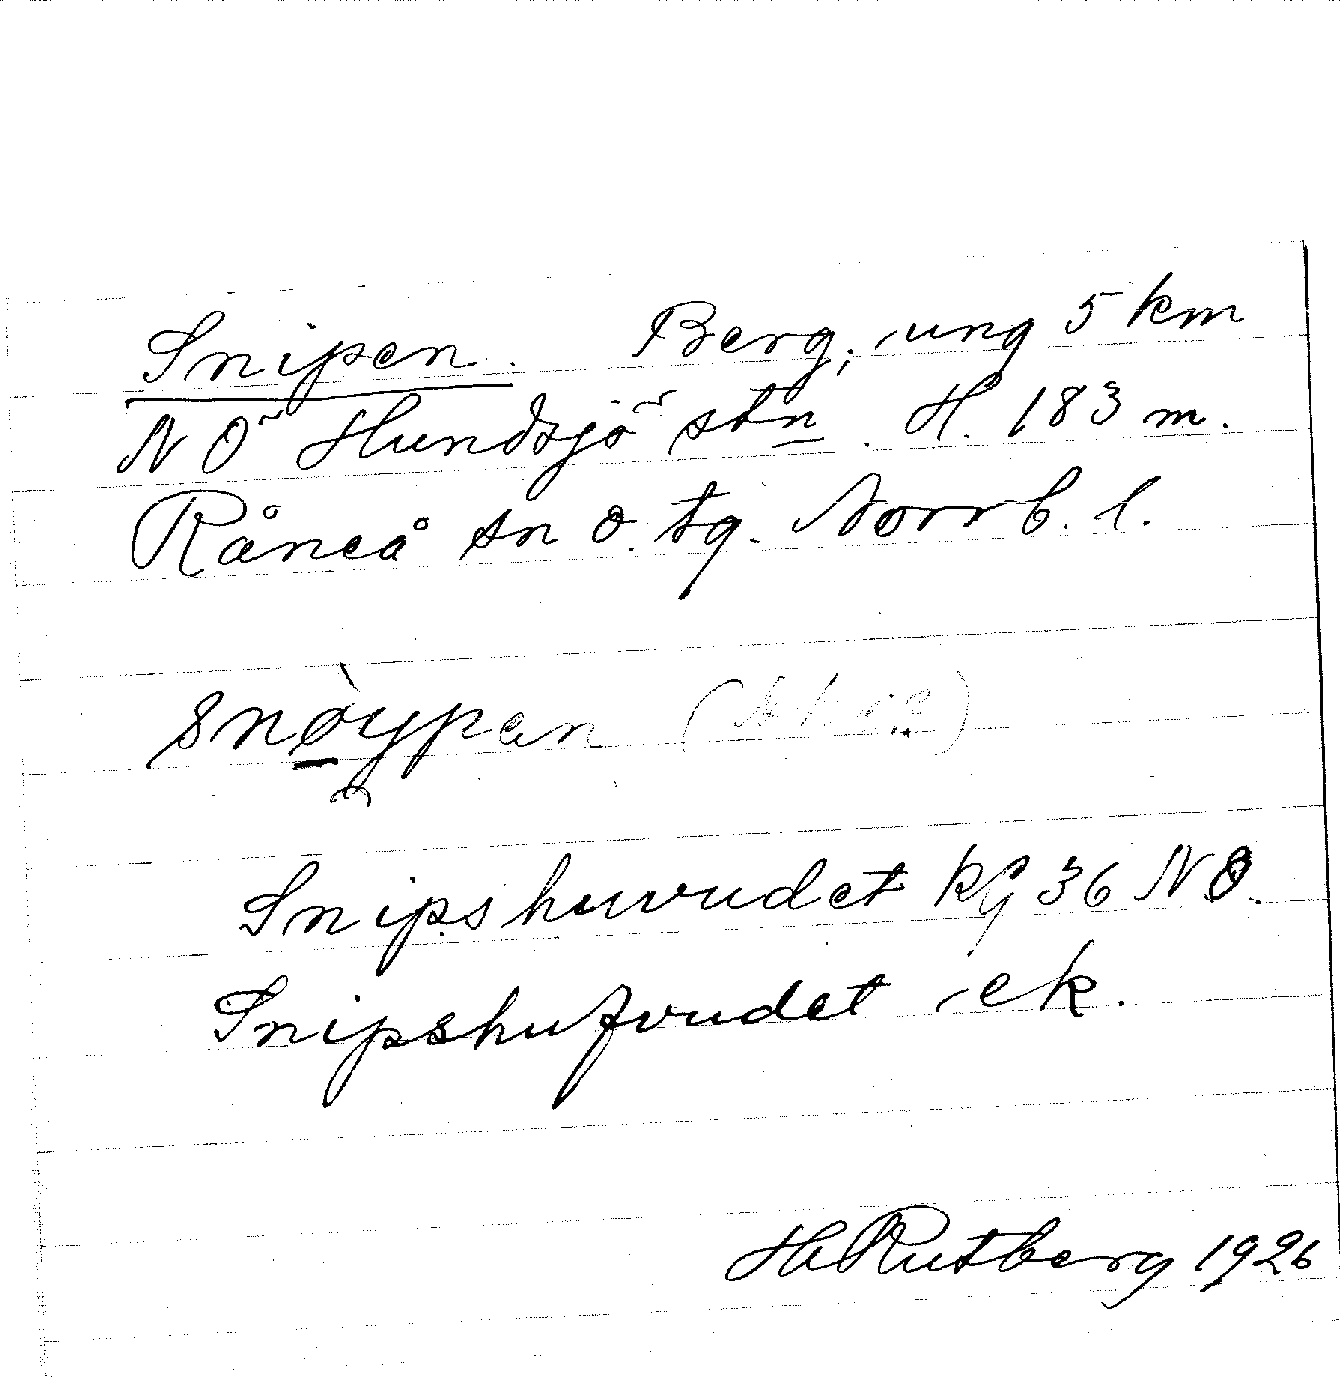 Snipen. Berg, ung 5 km
NO Hundsjö stn. H. 183 m.
Råneå sn ö. tg. Norrb. l.
snøypen
Snipshuvudet kg 36 NO.
Snipshufvudet ek.
H Rutberg 1926